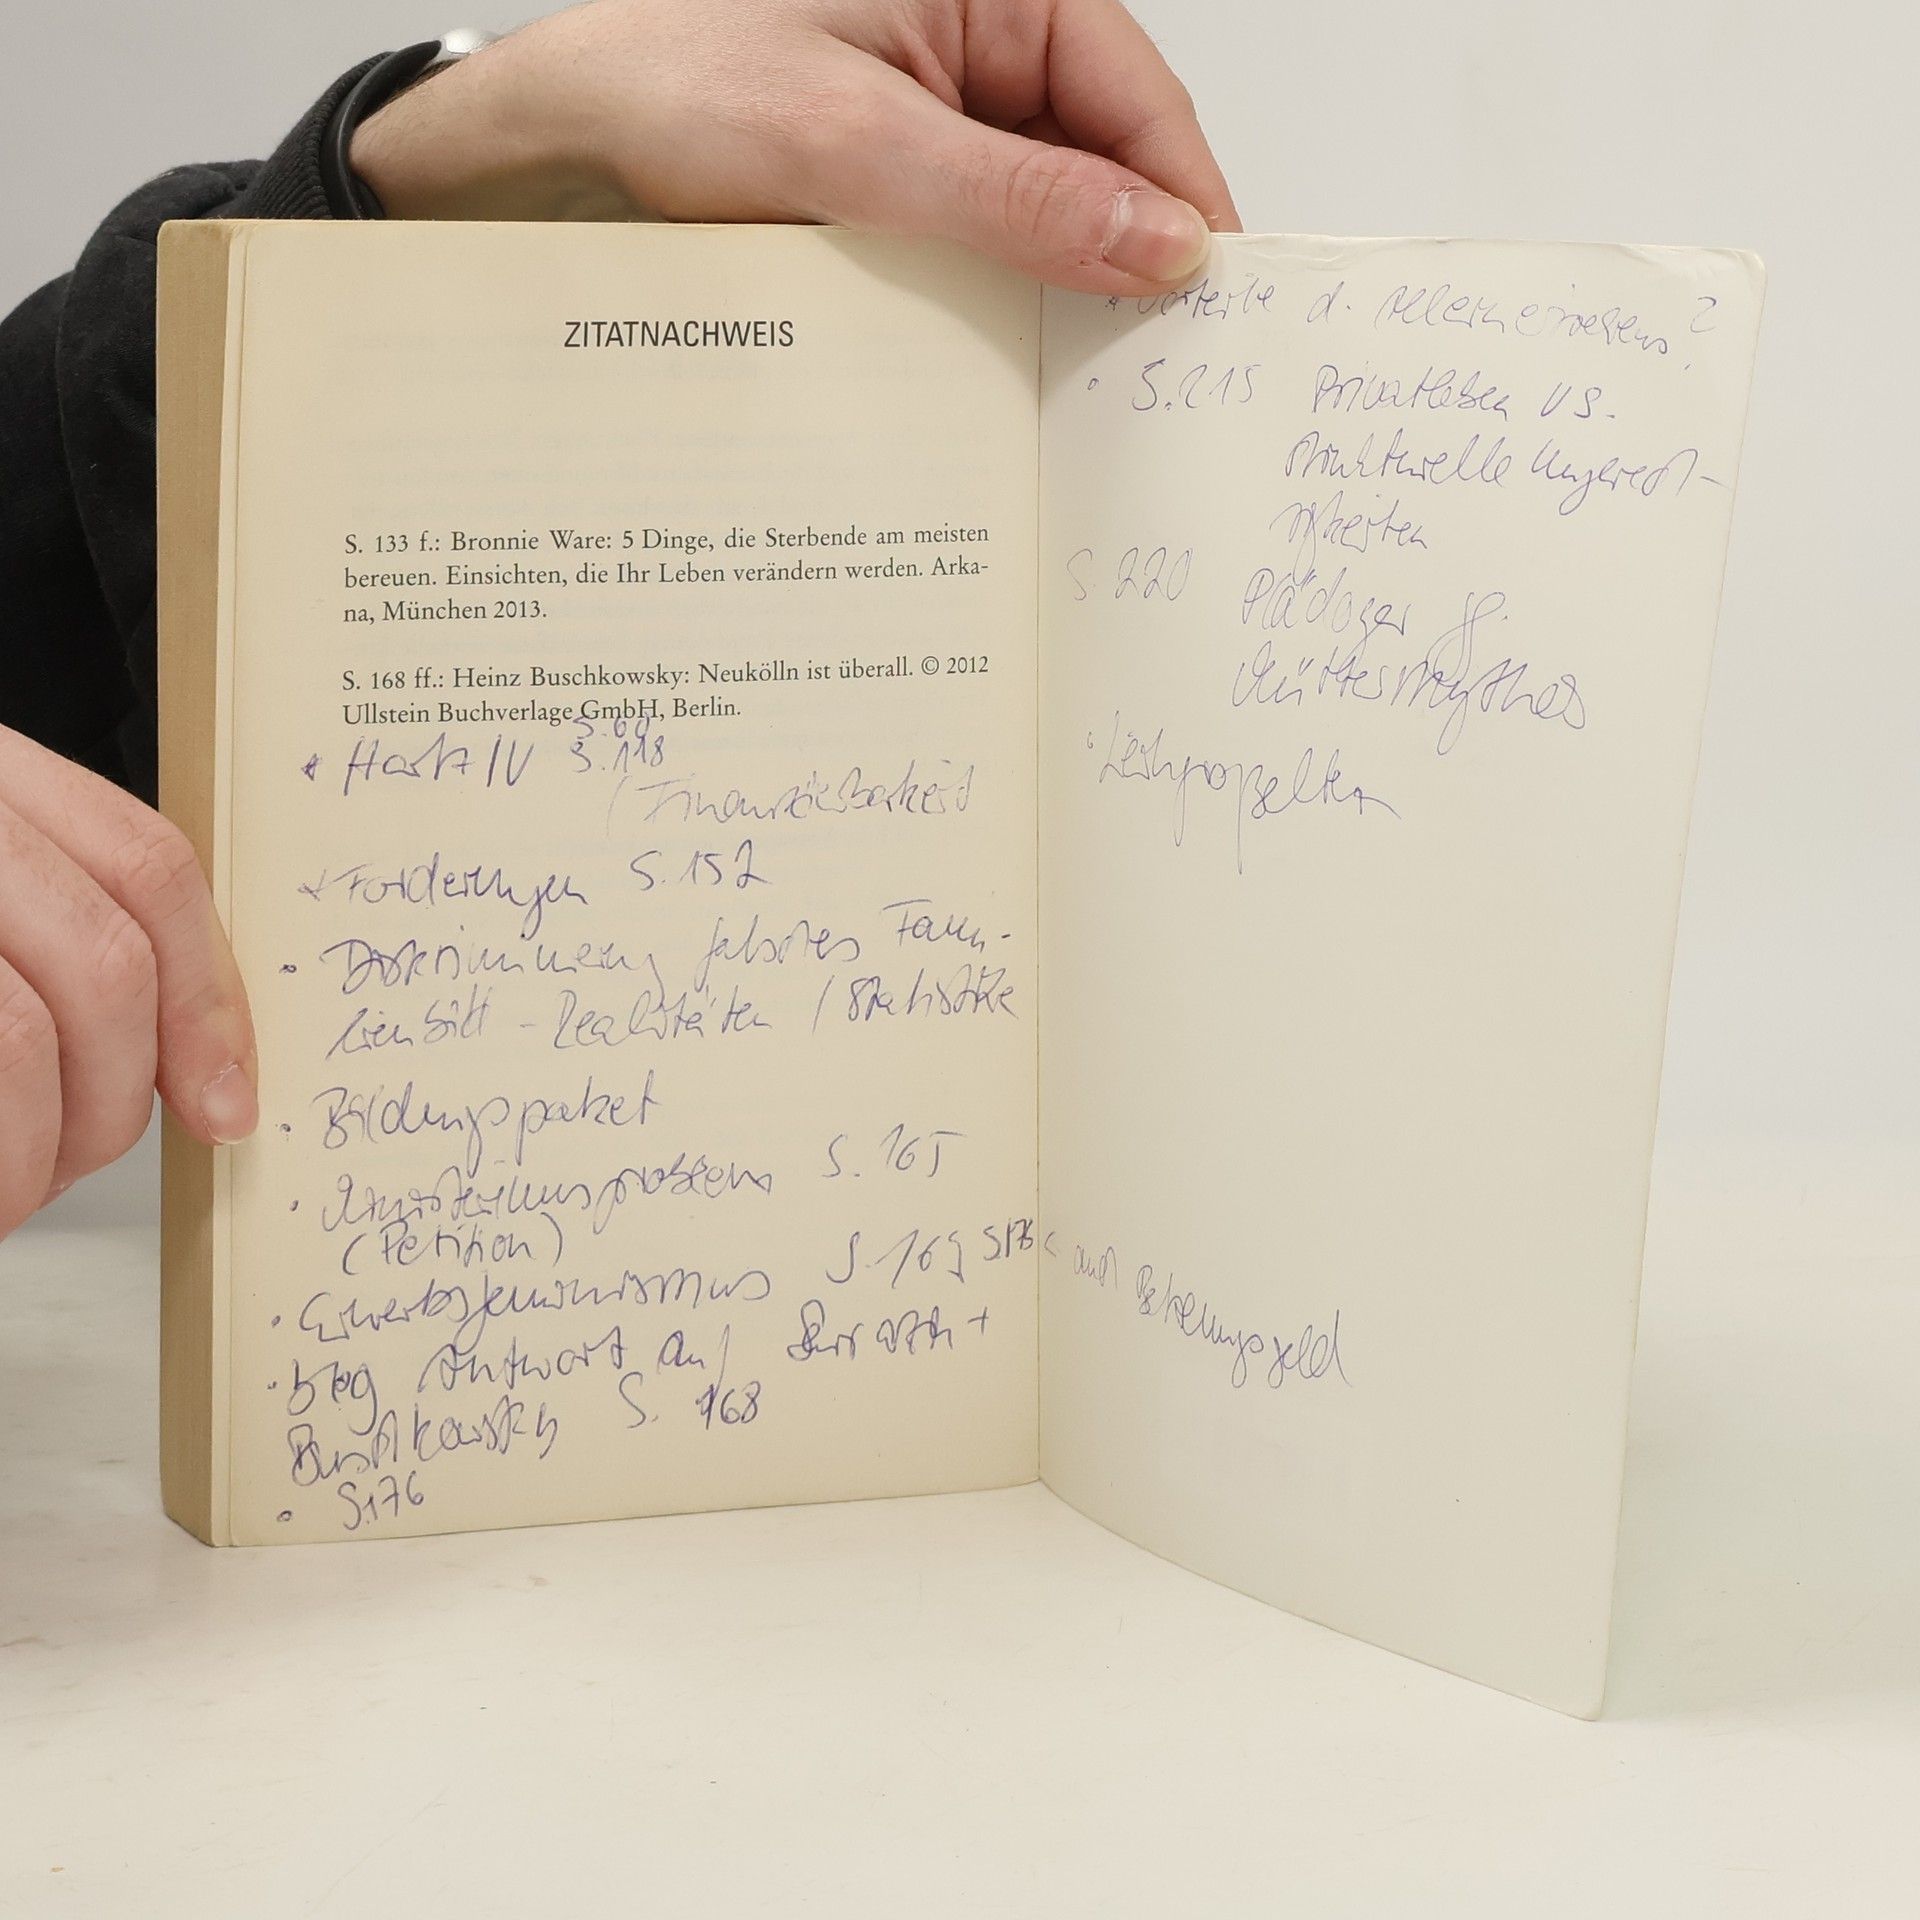 ZITATNACHWEIS
S. 133 f.: Bronnie Ware: 5 Dinge, die Sterbende am meisten
bereuen. Einsichten, die Ihr Leben verändern werden. Arka-
na, München 2013.
S. 168 ff.: Heinz Buschkowsky: Neukölln ist überall. © 2012
Ullstein Buchverlage GmbH, Berlin.
S. 60
* Hartz IV S. 118
(Finanzierbarkeit
* Forderungen S. 152
• Diskriminierung falsches Fami-
lienbild - Realitäten / Statistike
• Bildungspaket
• S. 165
(Petition)
• Erwerbsfeminismus S. 169 S176
• Antwort auf Sarrazin +
Buschkowsky S. 168
• S. 176
* Vorteile d. Alleinerziehens?
• S. 215 Privatleben vs.
strukturelle Ungerecht-
igkeiten
S. 220 Plädoyer
Müttermythos
< auch Betreuungsgeld